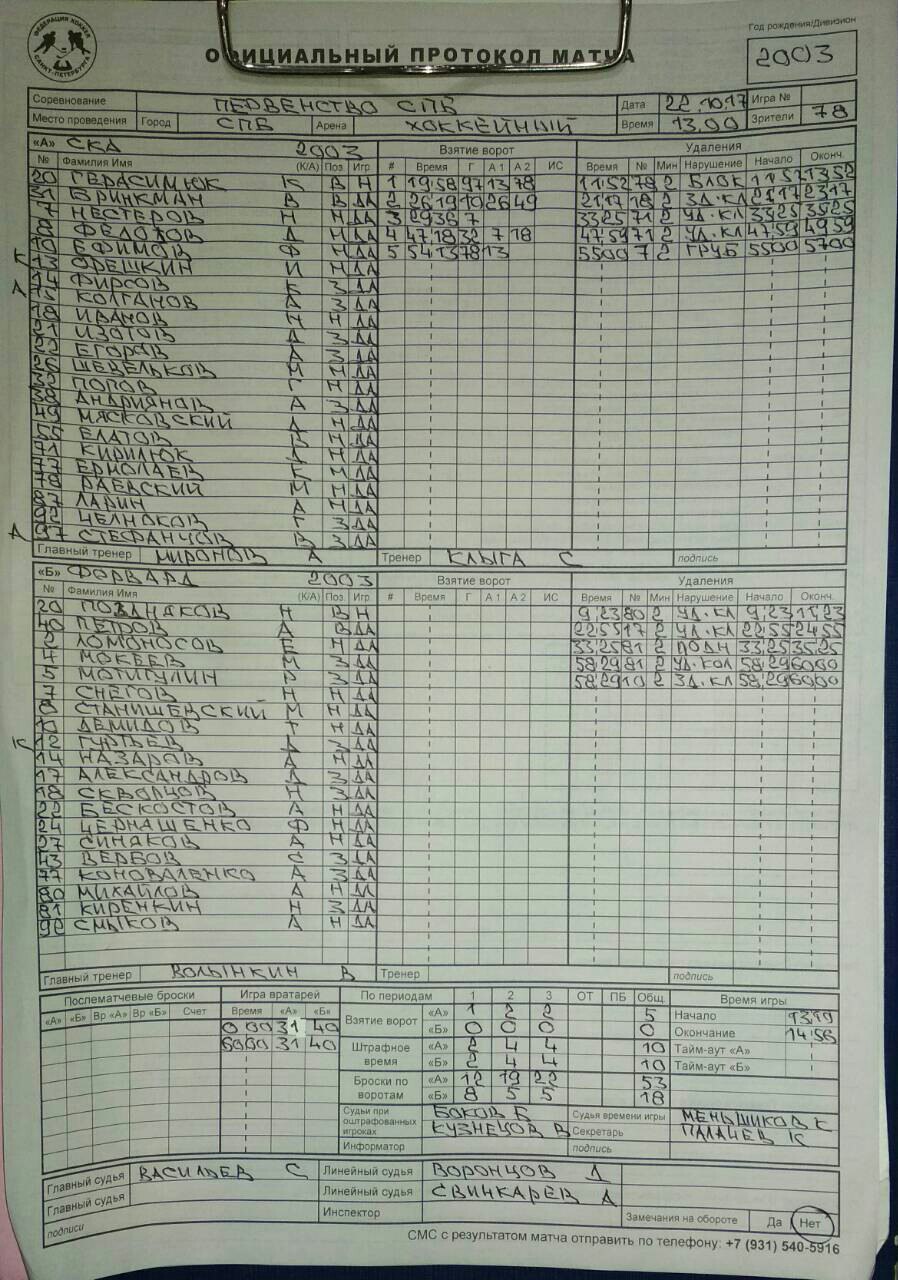 ФЕДЕРАЦИЯ ХОККЕЯ САНКТ-ПЕТЕРБУРГА
Год рождения/Дивизион
ОФИЦИАЛЬНЫЙ ПРОТОКОЛ МАТЧА
2003
Соревнование ПЕРВЕНСТВО СПБ Дата 22.10.17 Игра №
Место проведения Город СПБ Арена ХОККЕЙНЫЙ Время 13.00 Зрители 78
«А» СКА 2003 Взятие ворот Удаления
№ Фамилия Имя (К/А) Поз. Игр # Время Г А1 А2 ИС Время № Мин Нарушение Начало Оконч.
20 ГЕРАСИМЮК К В Н 1 19:58 97 13 78 11:52 78 2 БЛОК 11:57 13:52
31 БРИНКМАН В В ДА 2 26 19 10 26 49 21 17 18 2 ЗД.КЛ 21 17 23 17
7 НЕСТЕРОВ Н Н ДА 3 29 36 7 33 25 71 2 УД.КЛ 33 25 35 25
8 ФЕДОТОВ Д Н ДА 4 47,18 32 7 18 47,59 71 2 УД.КЛ 47 59 49 59
10 ЕФИМОВ Ф Н ДА 5 54 13 78 13 55 00 7 2 ГРУБ 55 00 57 00
К 13 ОРЕШКИН И Н ДА
14 ФИРСОВ Е З ДА
А 15 КОЛГАНОВ А З ДА
18 ИВАНОВ Н Н ДА
21 ИЗОТОВ Д З ДА
22 ЕГОРОВ А З ДА
26 ШЕВЕЛЬКОВ И Н ДА
32 ПОПОВ Г Н ДА
38 АНДРИЯНОВ А З ДА
49 МЯСКОВСКИЙ Д Н ДА
55 ЕЛАТОВ В Н ДА
71 КИРИЛЮК Д Н ДА
77 ЕРМОЛАЕВ К Н ДА
78 РАЕВСКИЙ М Н ДА
87 ЛАРИН А Н ДА
92 ЧЕЛНОКОВ Г З ДА
А 97 СТЕФАНЦОВ В З ДА
Главный тренер МИРОНОВ А Тренер КЛЫГА С подпись
«Б» ФОРВАРД 2003 Взятие ворот Удаления
№ Фамилия Имя (К/А) Поз. Игр # Время Г А1 А2 ИС Время № Мин Нарушение Начало Оконч.
20 ПОЗДНЯКОВ Н В Н 9,23 80 2 УД.КЛ 9,23 11,23
40 ПЕТРОВ Д В ДА 22 55 17 2 УД.КЛ 22 55 24 55
2 ЛОМОНОСОВ Е Н ДА 33 25 81 2 ПОДН 33 25 35 25
4 МОКЕЕВ М З ДА 58,29 81 2 УД.КОЛ 58,29 60 00
5 МОТИГУЛИН Р З ДА 58 29 10 2 ЗД.КЛ 58,29 60 00
7 СНЕГОВ Н Н ДА
8 СТАНИШЕВСКИЙ М Н ДА
10 ДЕМИДОВ Г Н ДА
К 12 ГУРТЬЕВ Д З ДА
14 НАЗАРОВ А Н ДА
17 АЛЕКСАНДРОВ Д З ДА
18 СКВОРЦОВ Н З ДА
22 БЕСКОСТОВ А Н ДА
24 ЧЕРНАШЕНКО Ф Н ДА
27 СИНАКОВ А Н ДА
43 ВЕРБОВ С З ДА
77 КОНОВАЛЕНКО А З ДА
80 МИХАЙЛОВ А Н ДА
81 КИРЕНКИН Н З ДА
92 СМЫКОВ А Н ДА
Главный тренер ВОЛЫНКИН В Тренер подпись
Послематчевые броски Игра вратарей По периодам 1 2 3 ОТ ПБ Общ. Время игры
«А» «Б» Вр «А» Вр «Б» Счет Время «А» «Б» Взятие ворот «А» 1 2 2 5 Начало 13,19
0 00 31 40 «Б» 0 0 0 0 Окончание 14,56
60 00 31 40 Штрафное время «А» 2 4 4 10 Тайм-аут «А»
«Б» 2 4 4 10 Тайм-аут «Б»
Броски по воротам «А» 12 19 22 53
«Б» 8 5 5 18
Судьи при оштрафованных игроках БОКОВ Б Судья времени игры МЕНЬШИКОВ К
КУЗНЕЦОВ В Секретарь ПАЛАЧЕВ К
Информатор подпись
Главный судья ВАСИЛЬЕВ С Линейный судья ВОРОНЦОВ Д
Главный судья Линейный судья СВИНКАРЕВ А
подписи Инспектор Замечания на обороте Да Нет
СМС с результатом матча отправить по телефону: +7 (931) 540-5916